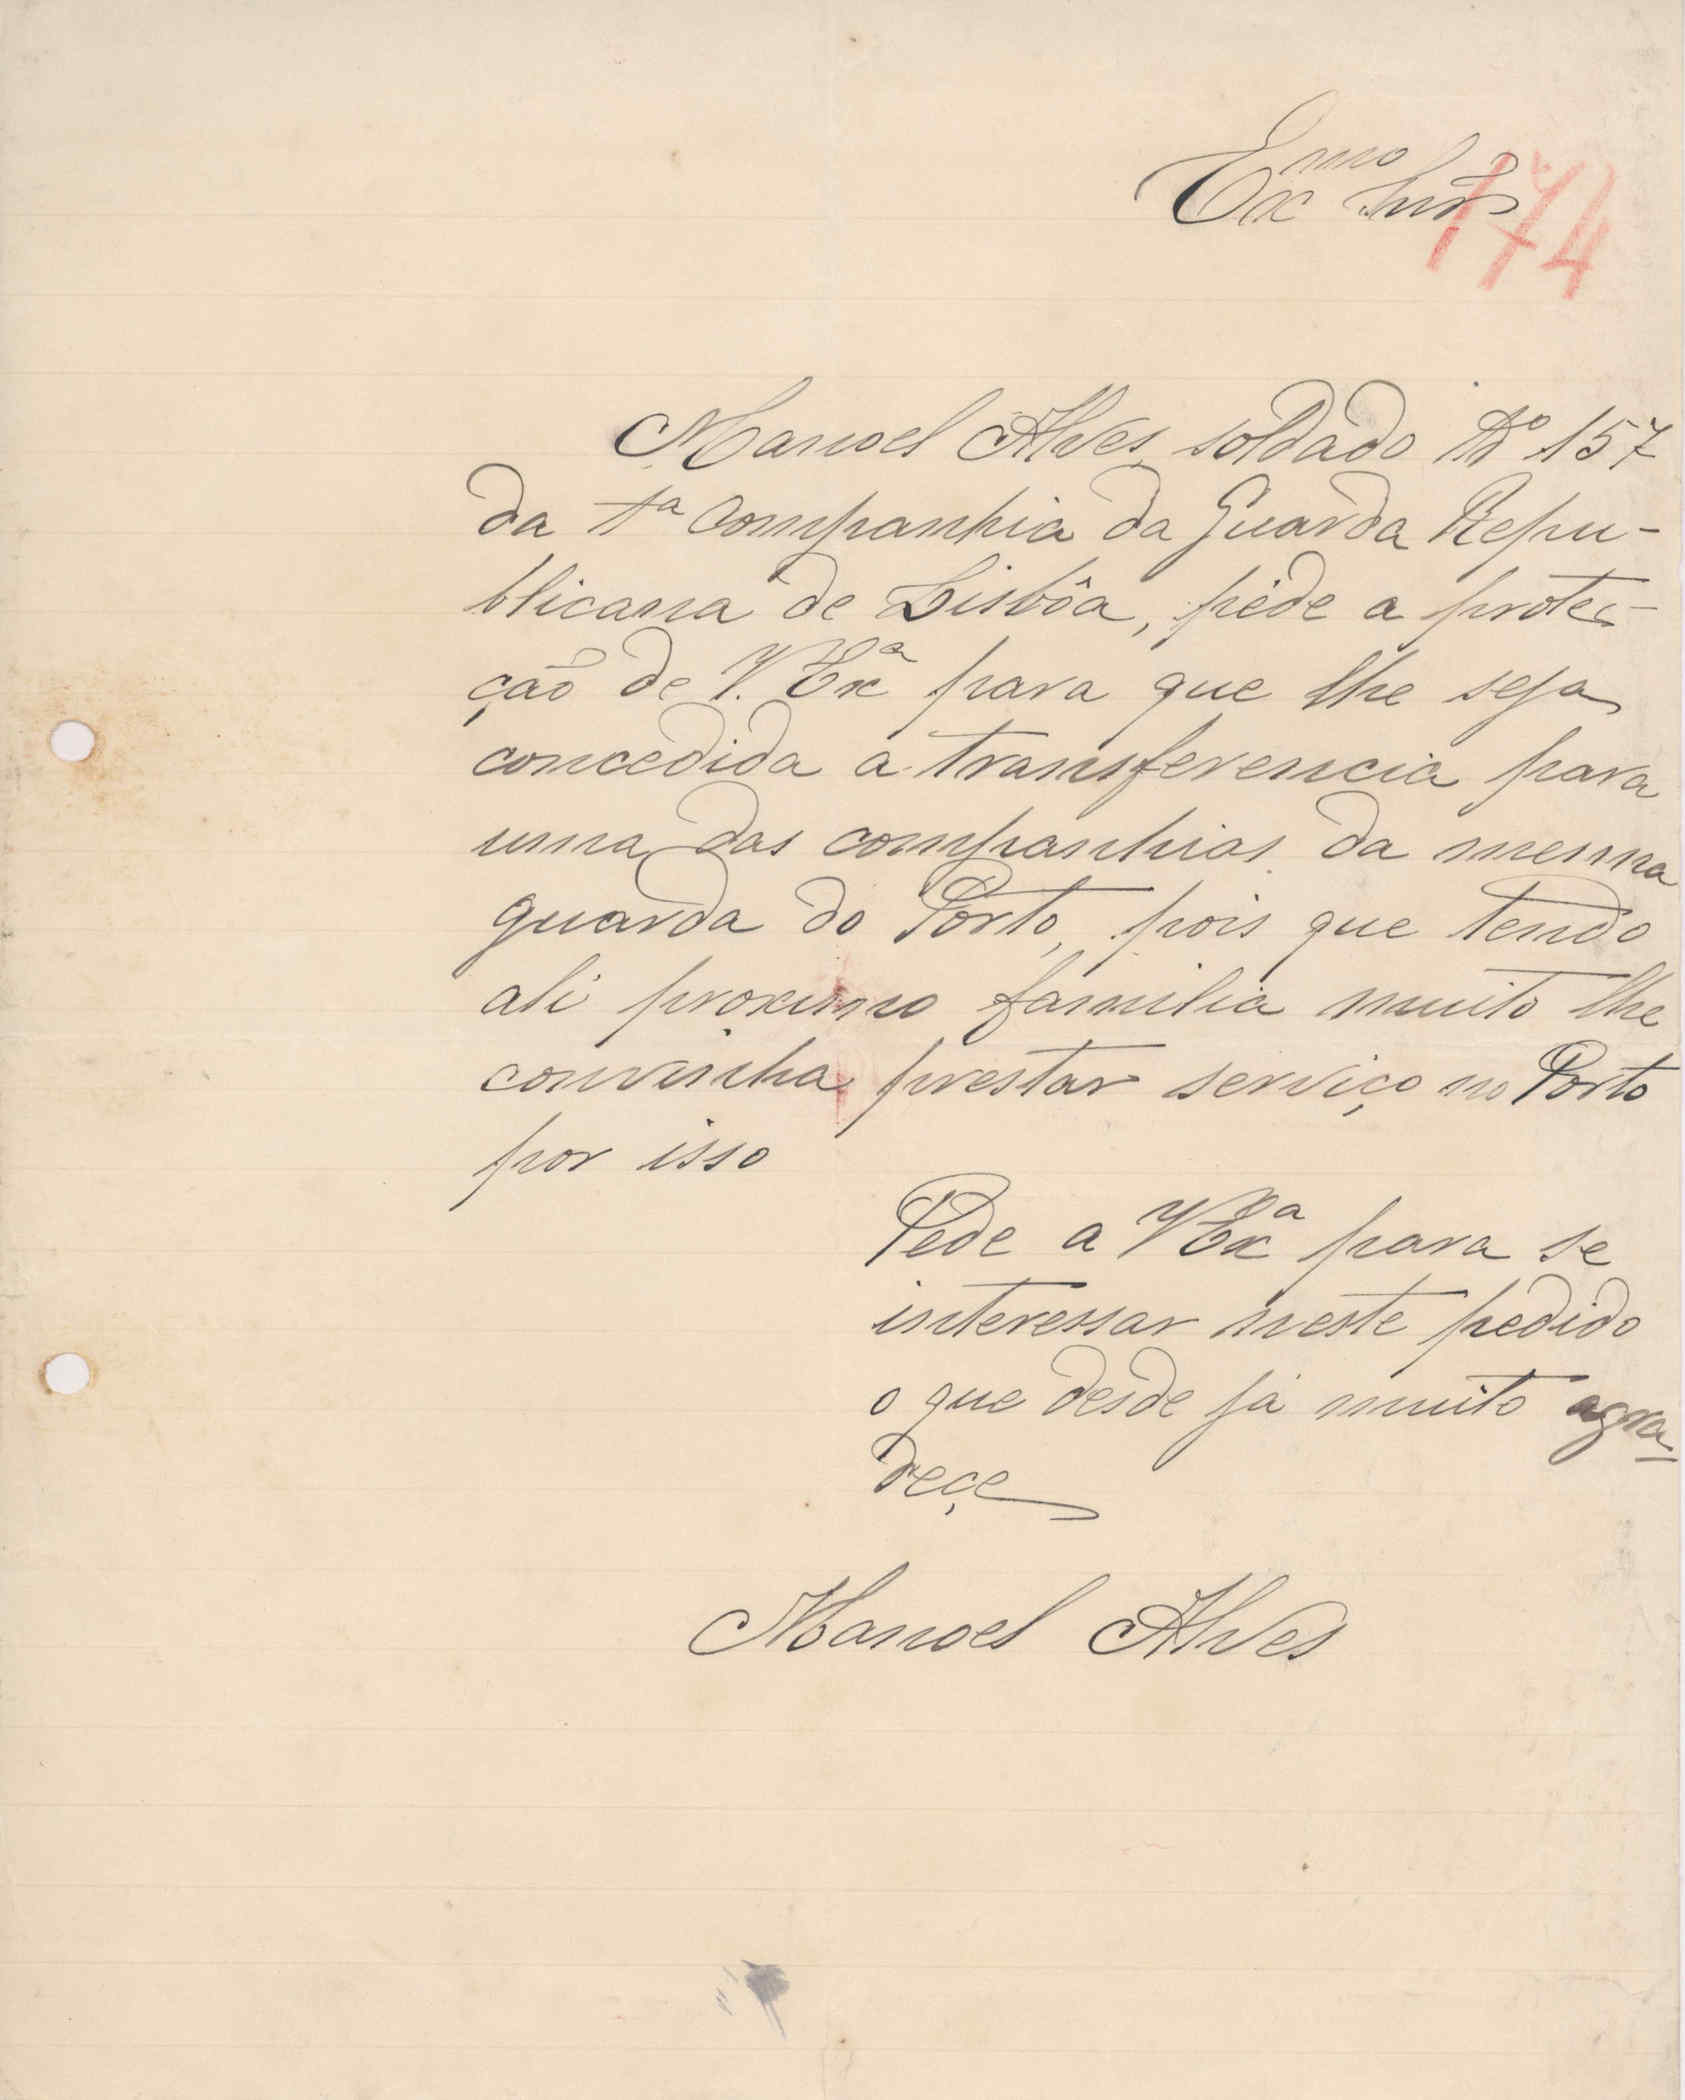 Exmo Snr
174
Manoel Alves soldado No 157
da 1a Companhia da Guarda Repu-
blicana de Lisbôa, péde a protec-
ção de V. Exa para que lhe seja
concedida a transferencia para
uma das companhias da mesma
guarda do Porto, pois que tendo
ali proximo familia muito lhe
convinha prestar serviço no Porto
por isso
Pede a VExa para se
interessar neste pedido
o que desde já muito agra-
deçe
Manoel Alves